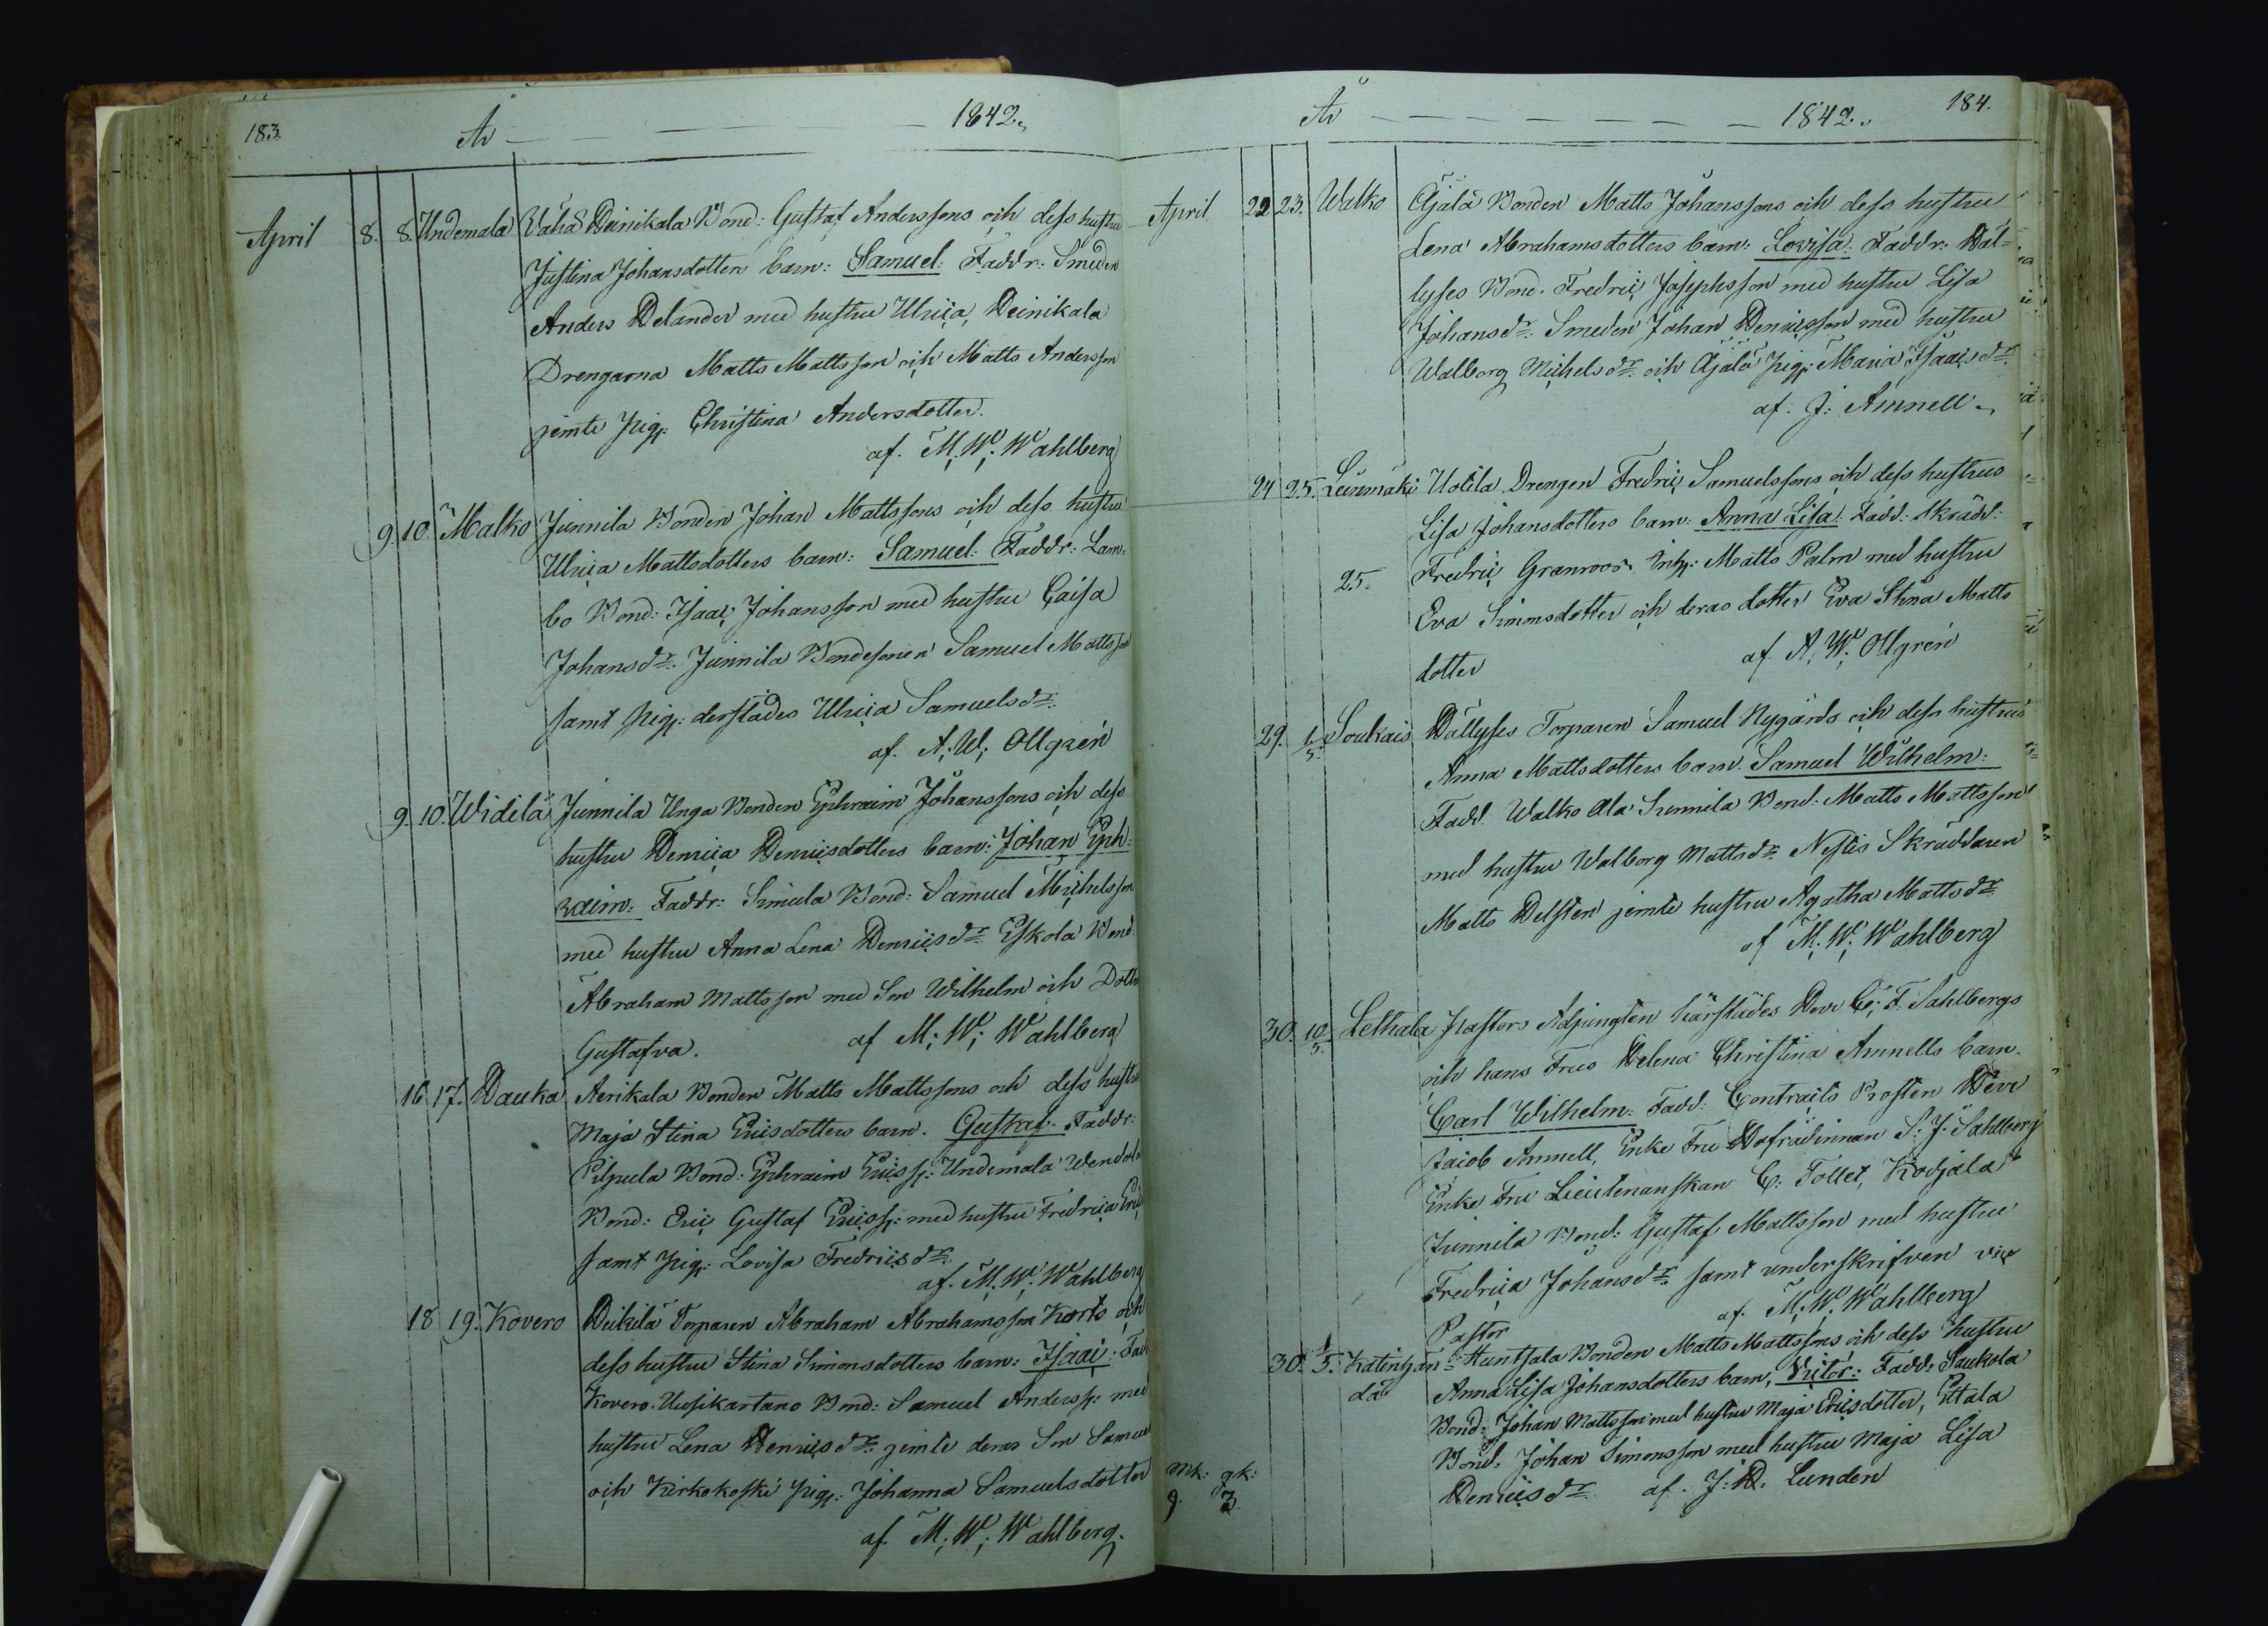 183.
År 1842.
April 8. 8. Undemala Vähä Heinikala Bond: Gustaf Anderssons och dess hustru
Justina Johansdotters barn: Samuel: Faddr: Smeden
Anders Helander med hustru Ulrica, Heinikala
Drengarna Matts Mattsson och Matts Andersson
jemte pig: Christina Andersdotter.
af. M. W. Wahlberg
9. 10. Malko Junnila Bonden Johan Mattssons och dess hustru
Ulrica Mattsdotters barn: Samuel: Faddr: Lam-
bo Bond: Isaac Johansson med hustru Caisa
Johansdr. Junnila Bondesonen Samuel Mattsson
samt Pig: derstädes Ulrica Samuelsdr.
af. A. W. Ollgrén
9. 10. Widilä Junnila Unga Bonden Ephraim Johanssons och dess
hustru Henrica Henricsdotters barn: Johan Eph-
raim: Faddr: Simula Bond: Samuel Michelsson
med hustru Anna Lena Henricsdr. Eskola Bond:
Abraham Mattsson med Son Wilhelm och Dotter
Gustafva. af M. W. Wahlberg
16 17. Hauka Aerikala Bonden Matts Mattssons och dess hustru
Maja Stina Ericsdotters barn. Gustaf. Faddr:
Pilpula Bond: Ephraim Ericss: Undemala Wendola
Bond: Eric Gustaf Ericss: med hustru Fredrica Eric
samt pig: Lovisa Fredricsdr.
af. M. W. Wahlberg
18 19. Kovero Heikilä Torparen Abraham Abrahamsson Korts och
dess hustru Stina Simonsdotters barn: Isaac: Fad
Kovero Uusikartano Bond: Samuel Anderss: med
hustru Lena Henricsdr. jemte deras Son Samuel
och Kirkokoski pig: Johanna Samuelsdotter
af M. W. Wahlberg.
År 1842. 184.
April 22 23. Walko Äjälä Bonden Matts Johanssons och dess hustru
Lena Abrahamsdotters barn: Lovisa: Faddr: Häl-
lyses Bond. Fredric Josephsson med hustru Lisa
Johansdr. Smeden Johan Henricsson med hustru
Walborg Michelsdr. och Äjälä Pig: Maria Isaacsdr.
af. J. Amnell.
24 25. Leinmäki Uotila Drengen Fredric Samuelssons och dess hustrus
Lisa Johansdotters barn: Anna Lisa: Fadd: Skrädd:
25. Fredric Granroos. Inh: Matts Palm med hustru
Eva Simonsdotter och deras dotter Eva Stina Matts
dotter af A. W. Ollgrén
29. 1/5. Soukais Hällyses Torparen Samuel Nygårds och dess hustrus
Anna Mattsdotters barn. Samuel Wilhelm:
Fadd. Walko Ala Junnila Bond: Matts Mattsson
med hustru Walborg Mattsdr. Nestis Skräddaren
Matts Helsten jemte hustru Agatha Mattsdr.
af M. W. Wahlberg
30. 10/5. Lethala Pastors Adjungten härstädes Herr C. F. Sahlbergs
och hans Frus Helena Christina Amnells barn.
Carl Wilhelm: Fadd: Contracts Prosten Herr
Jacob Amnell, Enke Fru Hofrådinnan S. J. Sahlberg
Enke Fru Lieutenanskan C. Tollet, Kodjala
Junnila Bond: Gustaf Mattsson med hustru
Fredrica Johansdr. samt underskrifven vice
Pastor af. M. W. Wahlberg
30. 1/5. Katinhän-
da Huntsala Bonden Matts Mattssons och dess hustru
Anna Lisa Johansdotters barn, Victor: Fadd: Saukola
Bond: Johan Mattsson med hustru Maja Ericsdotter, Ettala
Bond: Johan Simonsson med hustru Maja Lisa
Henricsdr. af. J. H. Lunden
mk: qk:
9. 3.